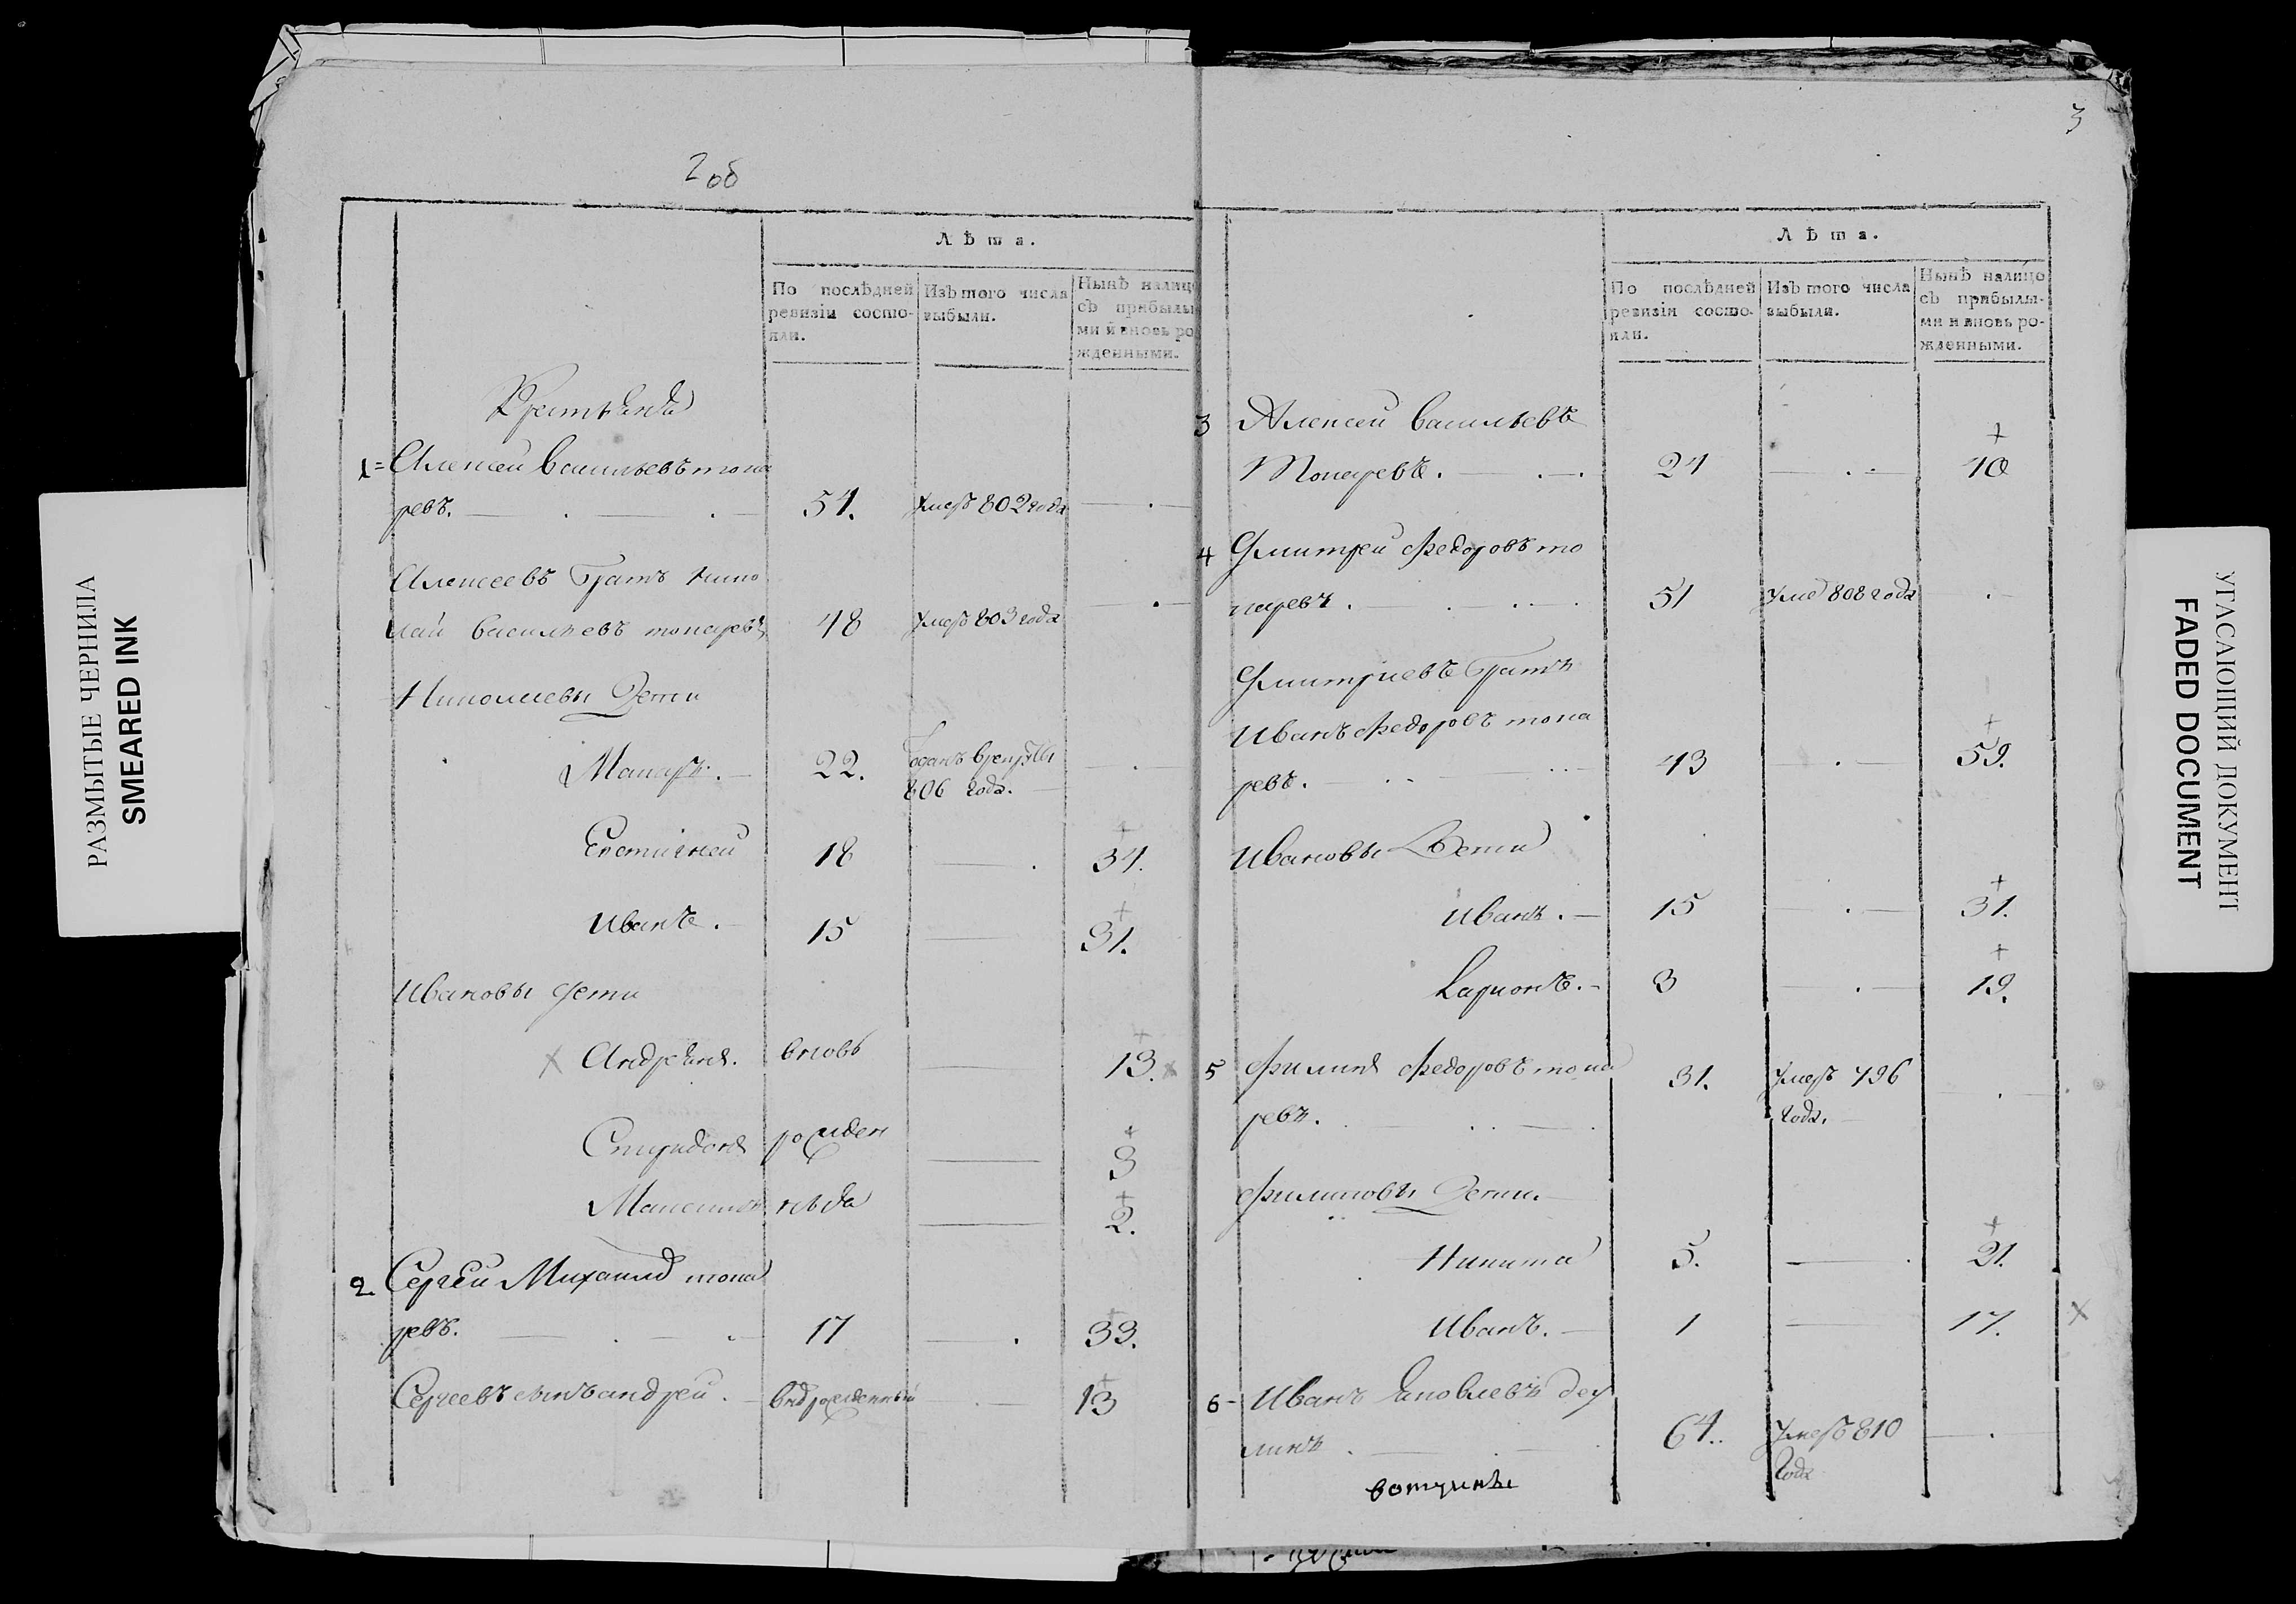 РАЗМЫТЫЕ ЧЕРНИЛА
SMEARED INK
2 об
Лѣта.
По послѣдней ревизіи состо-
яли.
Изъ того числа
выбыли.
Нынѣ налицо
съ прибылы
ми и вновь ро
жденными.
Крестьяня
1= Алексей васильевъ тока
ревъ. 54. умеръ 802 года
Алексеевъ братъ нико
лай васильевъ токаревъ 48 умеръ 803 года
Николаевы дети
Макаръ. 22. отданъ врекруты
806 года.
Евстигней 18 34.
иванъ. 15 31.
ивановы дети
Андреянъ. вновь 13.
Спиридонъ рожден 3
Максимъ ныя 2.
2 Сергей Михаила тока
ревъ. 17 33.
Сергеевъ сынъ андрей. внврожденный 13
3
Лѣта.
По послѣдней
ревизіи состо-
яли.
Изъ того числа
выбыли.
Нынѣ налицо
съ прибылы-
ми и вновь ро-
жденными.
3 Алексей васильевъ
Токаревъ. 24 40
4 Дмитрей федоровъ то
каревъ. 51 умеръ 808 года
Дмитриевъ братъ
иванъ федоровъ тока
ревъ. 43 59.
ивановы дети
иванъ. 15 31.
Ларионъ. 3 19.
5 филипъ федоровъ тока
ревъ. 31. умеръ 796
года.
филиповы дети.
Никита 5. 21.
иванъ. 1 17.
6 иванъ яковлевъ
линъ 64. умеръ 810
года
вотчины
УГАСАЮЩИЙ ДОКУМЕНТ
FADED DOCUMENT